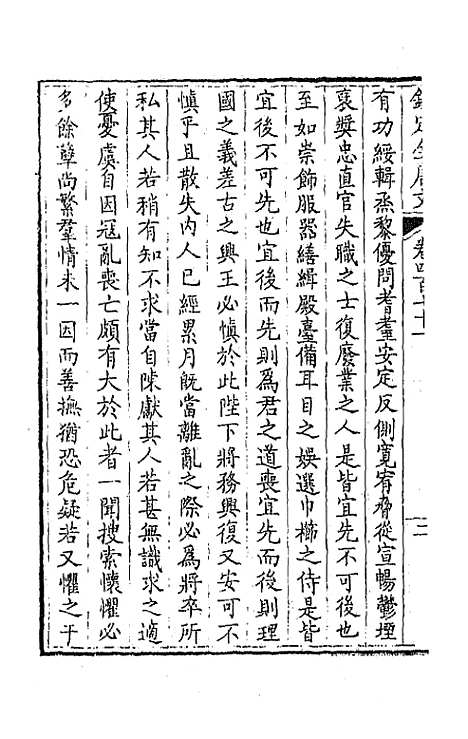 欽定全唐文 卷四百七十一 二
有功綏輯烝黎優問耆耋安定反側寬宥脅從宣暢鬱堙
褒獎忠直官失職之士復廢業之人是皆宜先不可後也
至如崇飾服器繕緝殿臺備耳目之娛選巾櫛之侍是皆
宜後不可先也宜後而先則爲君之道喪宜先而後則理
國之義差古之興王必慎於此陛下將務興復又安可不
慎乎且散失内人已經累月旣當離亂之際必爲將卒所
私其人若稍有知不求當自陳獻其人若甚無識求之適
使憂虞自因寇亂喪亡頗有大於此者一聞搜索懷懼必
多餘孽尚繁羣情未一因而善撫猶恐危疑若又懼之于